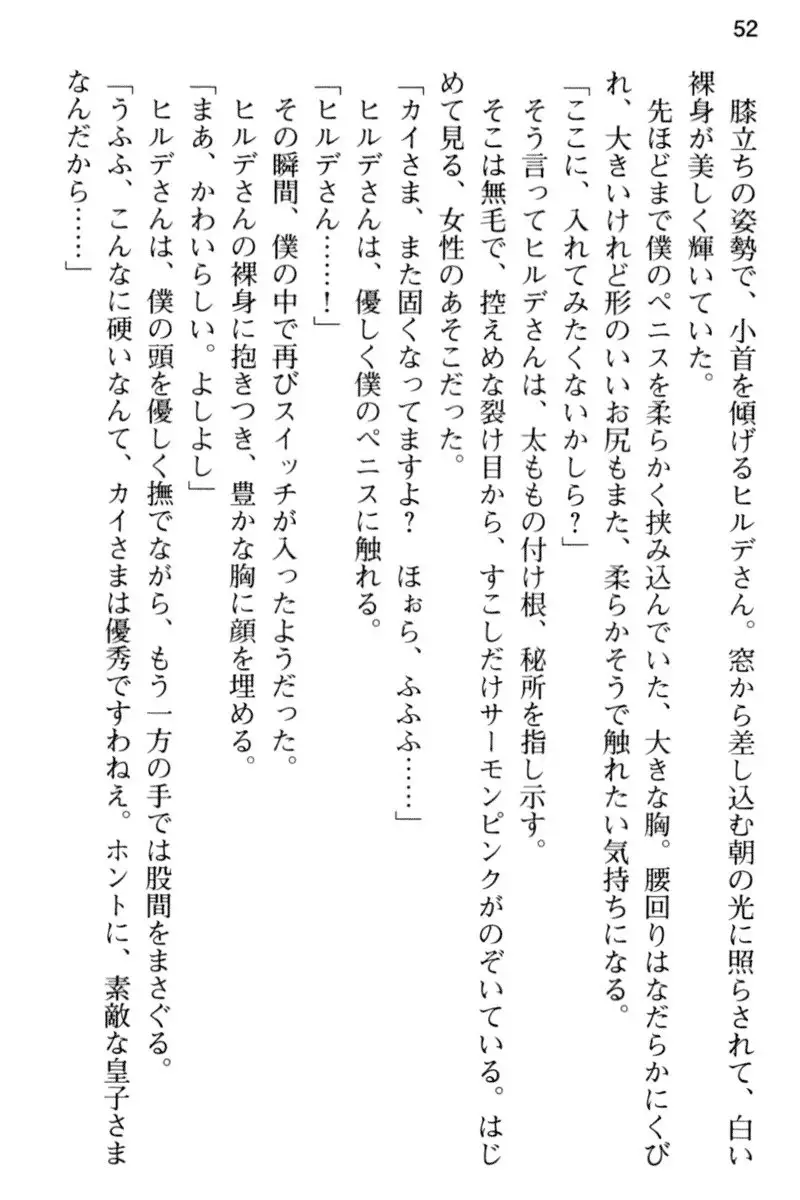 52
膝立ちの姿勢で、小首を傾げるヒルデさん。窓から差し込む朝の光に照らされて、白い
裸身が美しく輝いていた。
先ほどまで僕のペニスを柔らかく挟み込んでいた、大きな胸。腰回りはなだらかにくび
れ、大きいけれど形のいいお尻もまた、柔らかそうで触れたい気持ちになる。
「ここに、入れてみたくないかしら?」
そう言ってヒルデさんは、太ももの付け根、秘所を指し示す。
そこは無毛で、控えめな裂け目から、すこしだけサーモンピンクがのぞいている。はじ
めて見る、女性のあそこだった。
「カイさま、また固くなってますよ? ほぉら、ふふふ……」
ヒルデさんは、優しく僕のペニスに触れる。
「ヒルデさん……!」
その瞬間、僕の中で再びスイッチが入ったようだった。
ヒルデさんの裸身に抱きつき、豊かな胸に顔を埋める。
「まあ、かわいらしい。よしよし」
ヒルデさんは、僕の頭を優しく撫でながら、もう一方の手では股間をまさぐる。
「うふふ、こんなに硬いなんて、カイさまは優秀ですわねえ。ホントに、素敵な皇子さま
なんだから……」